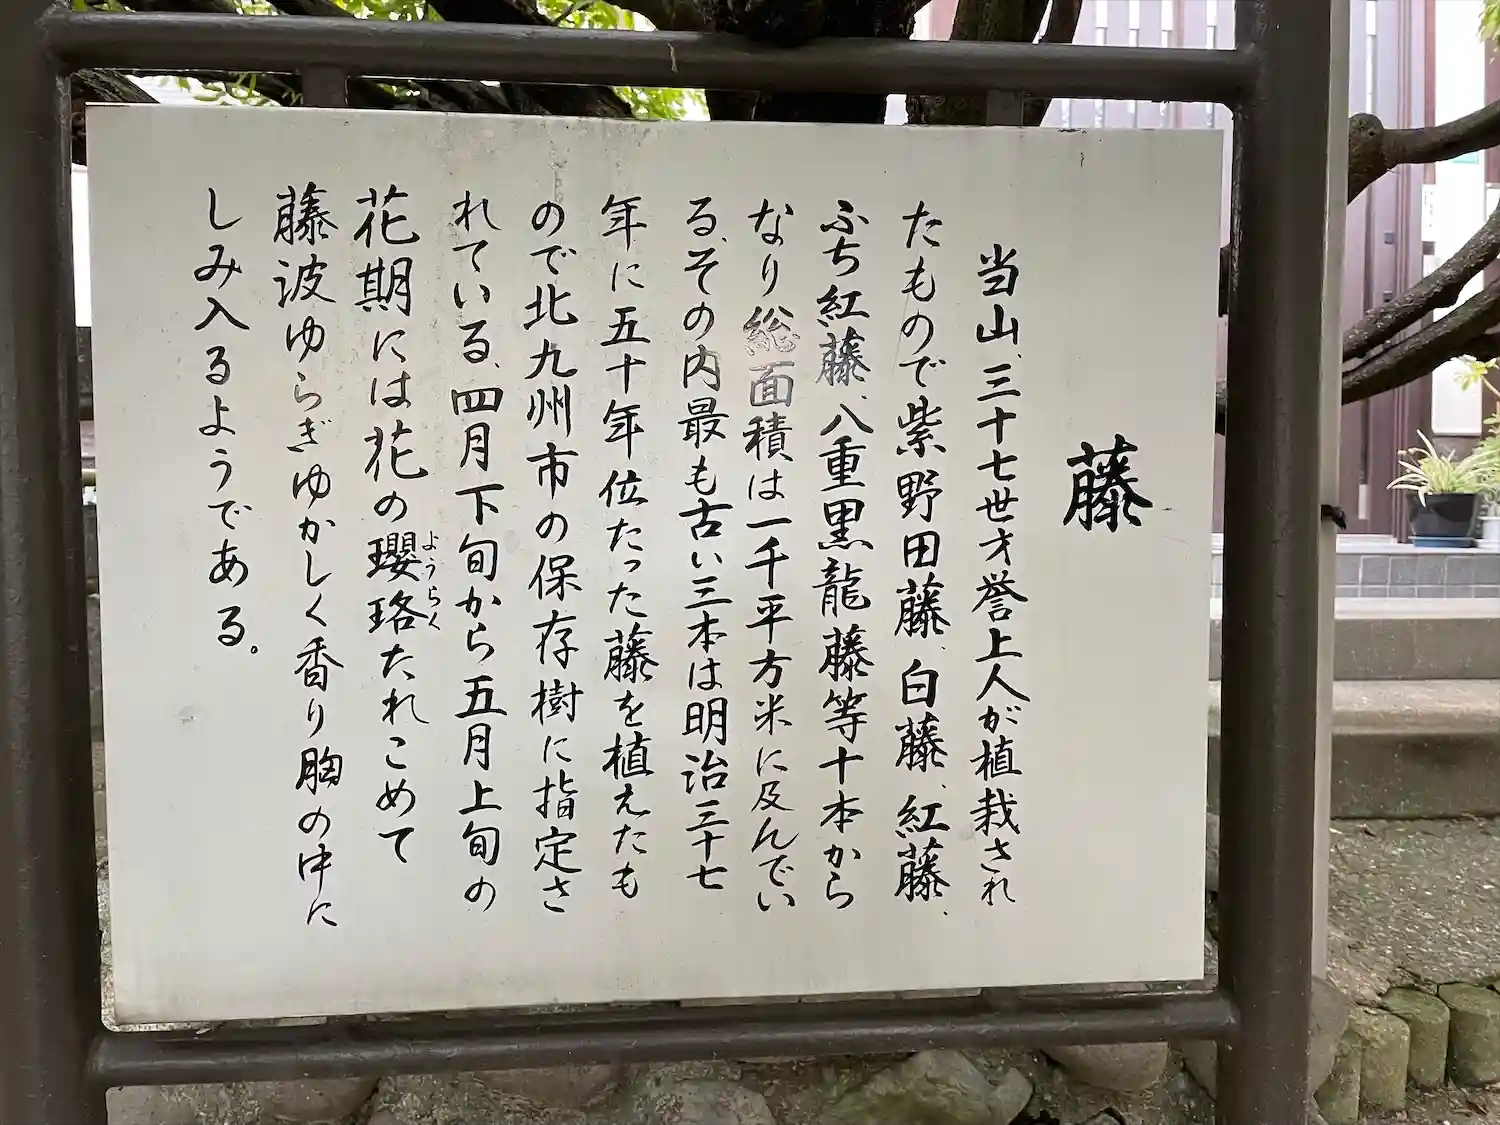 藤
当山、三十七世才誉上人が植栽され
たもので紫野田藤、白藤、紅藤、
ふち紅藤、八重黒龍藤等十本から
なり総面積は一千平方米に及んでい
る、その内最も古い三本は明治三十七
年に五十年位たった藤を植えたも
ので北九州市の保存樹に指定さ
れている、四月下旬から五月上旬の
花期には花の瓔珞たれこめて
ようらく
藤波ゆらぎゆかしく香り胸の中に
しみ入るようである。